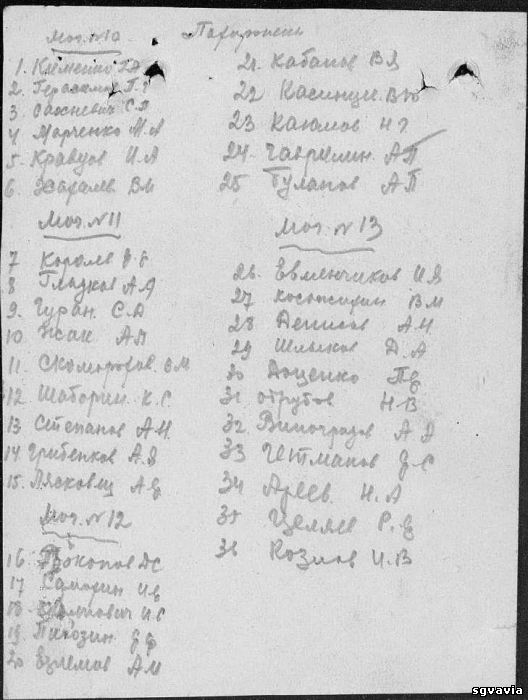 Мог. №10
Похоронены
1. Клименко
2. Герасимов
3. Сахневич С.П
4 Марченко М.А
5. Кравцов И.А
6. Жаралев ВМ
Мог. №11
7 Королев
8 Гладков А.Я
9. Гуран. С.А
10 Исак АП
11. Скоморохов. ВМ
12 Шаборин К.С.
13 Степанов А.И.
14 Грибенков А.Я
15. Лясковец
Мог. №12
16. Прокопов ДС
17 Саморин
18
19. Пирозин
20 А.М
21. Кабанов ВЯ
22
23 Каюмов Н
24 Гаврилин АП
25 Буланов АП
Мог. №13
26. Евменчиков И.Я
27 ВМ
28 Денисов АИ
29 Шлыков Д.А
30 Доценко
31 Отрубов Н.В
32 Виноградов А Д
33 Четманов
34 Агеев Н.А
35 Целяев Р.
36 Козлов И.В
sgvavia